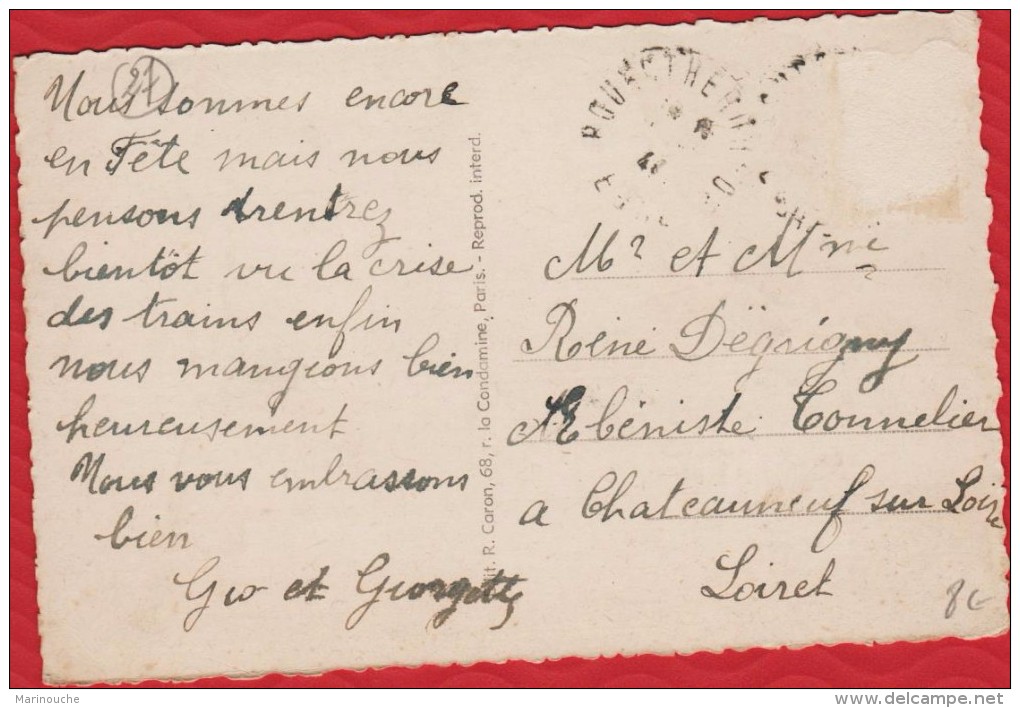 21
Nous sommes encore
en Fête mais nous
pensons rentrez
bientôt vu la crise
des trains enfin
nous mangions bien
heureusement
Nous vous embrassons
bien
Geo et Georgette
it. R. Caron, 68, r. la Condamine, Paris. - Reprod. interd.
Mr et Mme
Réné Dégrigny
Ebéniste Tonnelier
a Chateauneuf sur Loire
Loiret
8€
Marinouche
www.delcampe.net